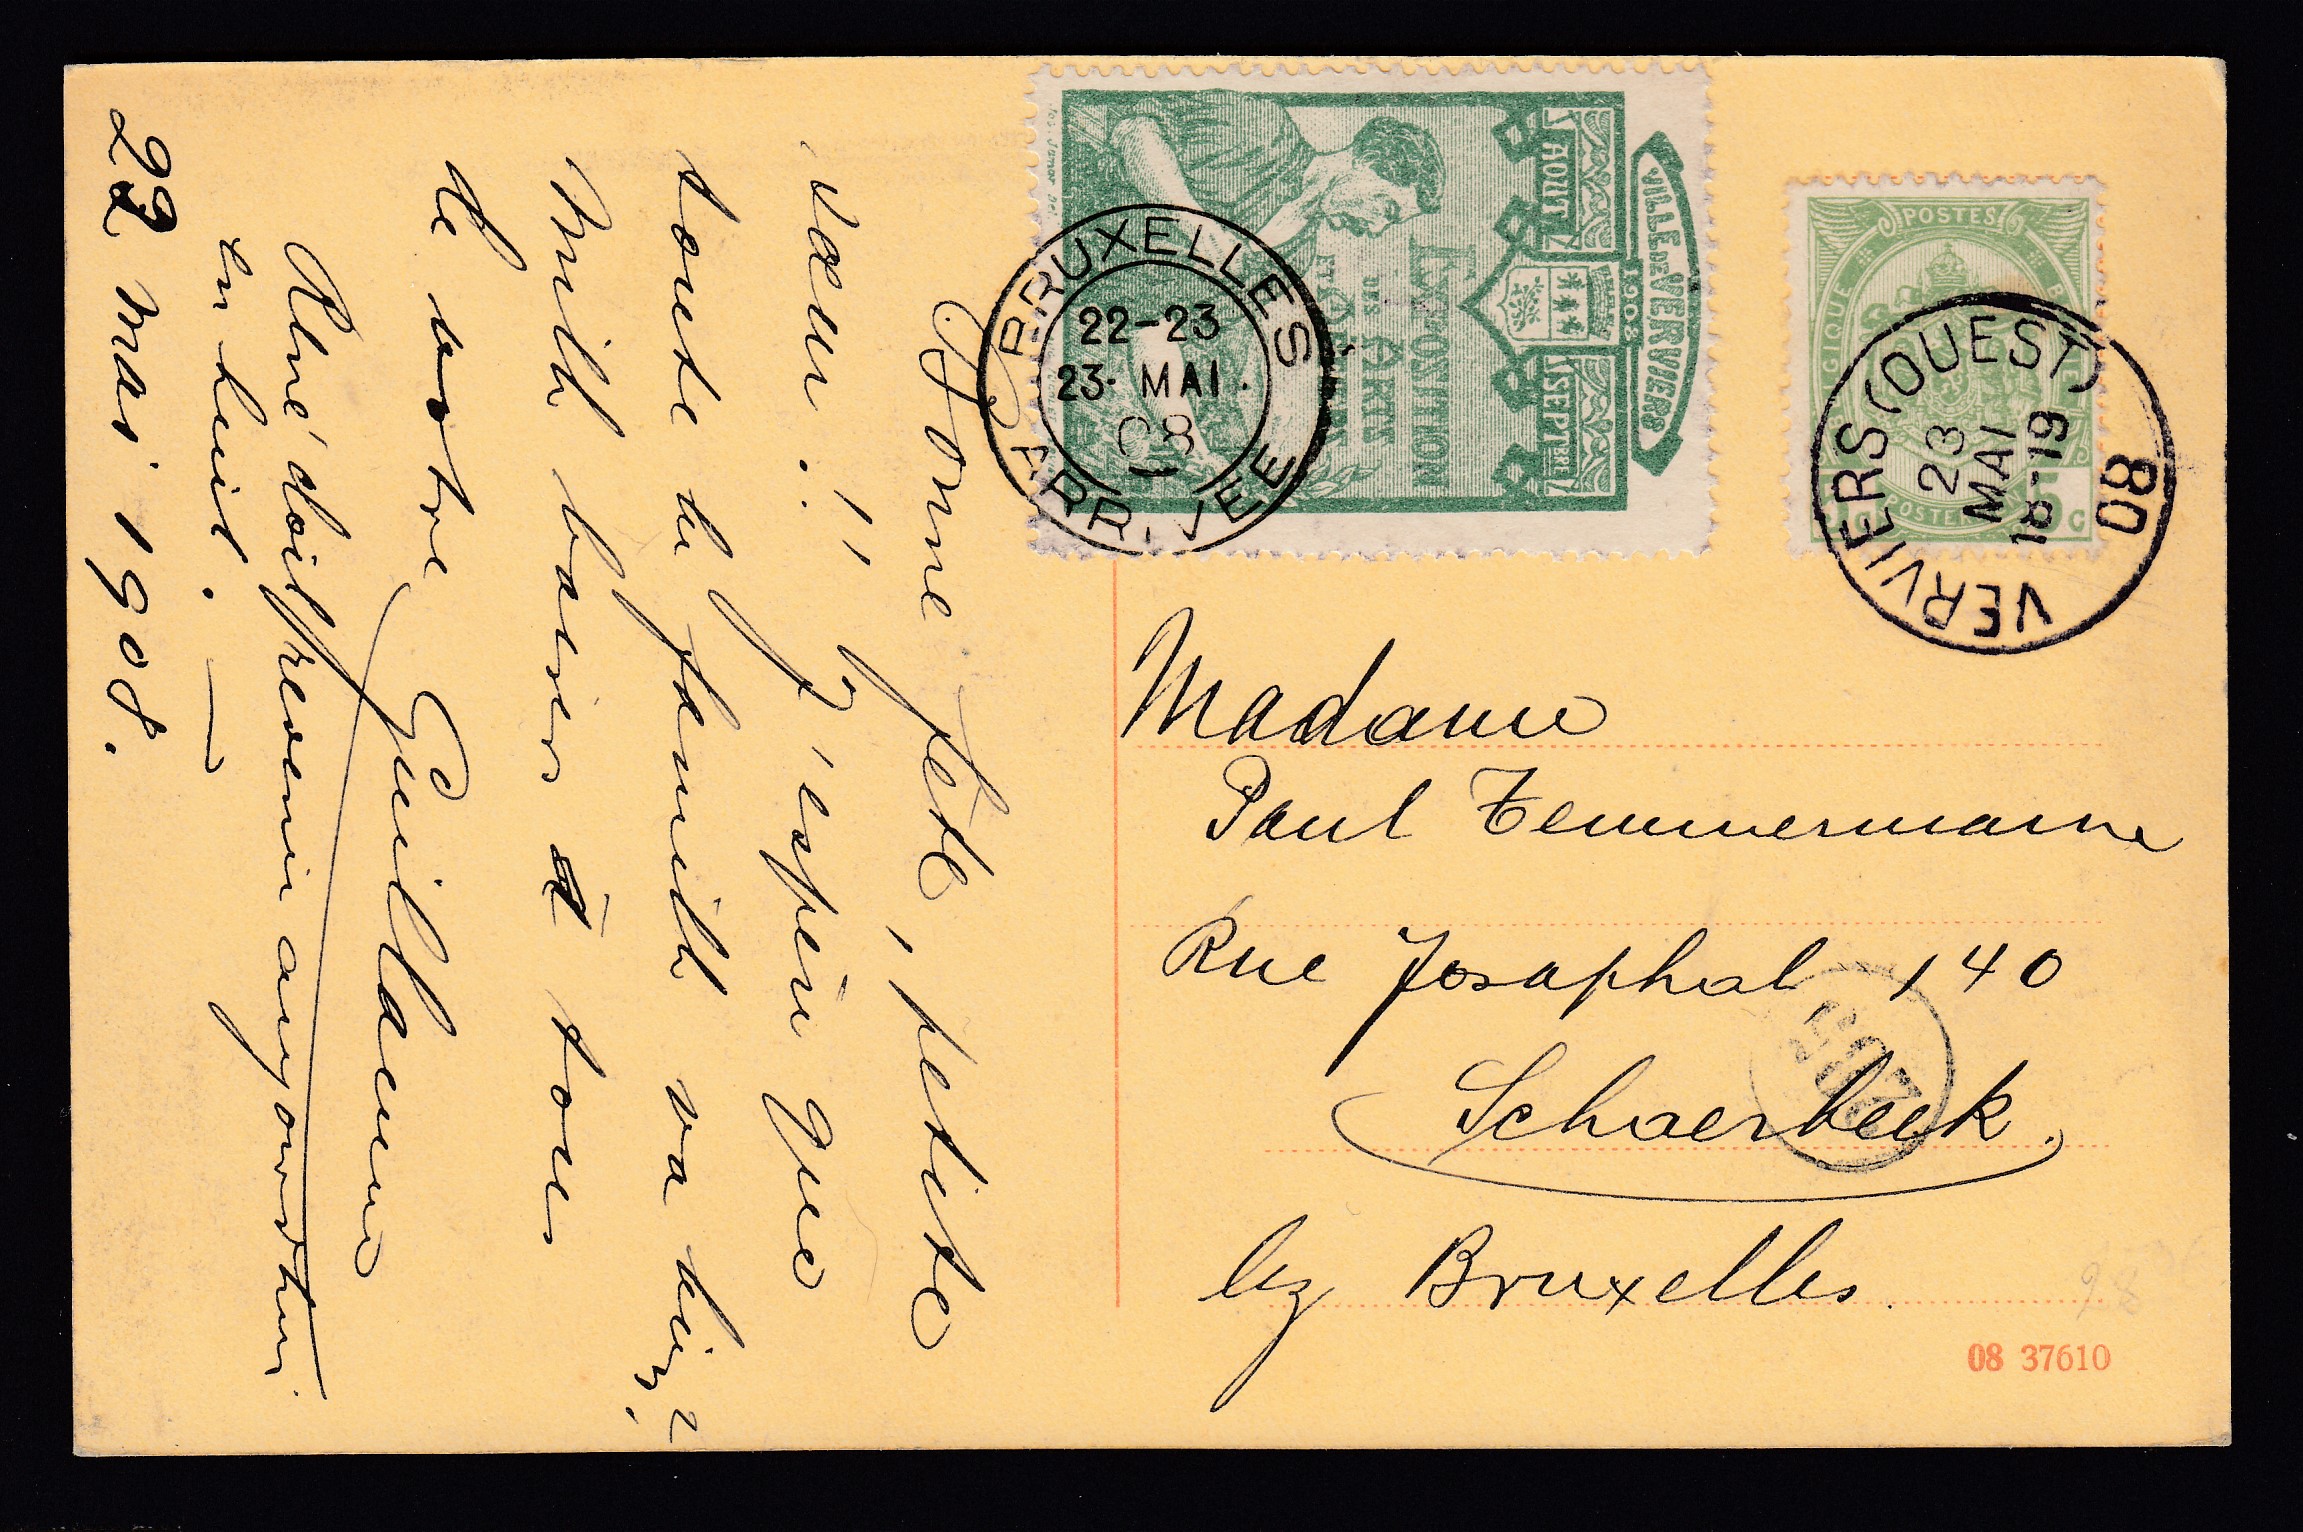 Bonne fête, petite
sœur!! J'espère que
toute la famille va bien,
Mille baisers à tous
de votre Guillaume
René doit revenir aujourd'hui
22 mai 1908.
VILLE DE VERVIERS
1908
AOUT
SEPTBRE
EXPOZITION
DES ARTS
ET
BRUXELLES
22-23
23· MAI.
08
ARRIVEE
POSTES
BELGIQUE
POSTERIJ
5 C
VERVIERS (OUEST)
23
MAI
18-19
08
Madame
Paul Temmermann
Rue Josaphat 140
Schaerbeek.
lez Bruxelles.
98
08 37610